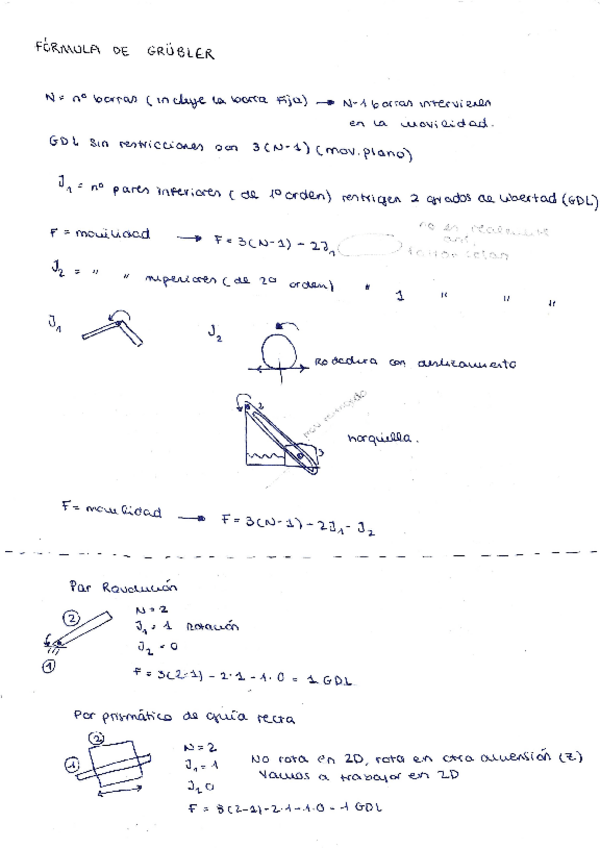 FÓRMULA DE GRÜBLER
N= nº barras (incluye la barra fija) → N-1 barras intervienen
en la movilidad.
GDL sin restricciones son 3(N-1) (mov. plano)
J₁ = nº pares inferiores (de 1º orden) restrigen 2 grados de libertad (GDL)
F = movilidad → F = 3(N-1) - 2J₁
no es
J₂ = " " superiores (de 2º orden) " 1 " " "
J₁
J₂
Rodadura con deslizamiento
2
3
horquilla.
F = movilidad → F = 3(N-1) - 2J₁ - J₂
Par Revolución
N = 2
②
J₁ = 1 Rotación
J₂ = 0
①
F = 3(2-1) - 2·1 - 1·0 = 1 GDL
Par prismático de guía recta
②
N = 2
①
J₁ = 1
No rota en 2D, rota en otra dimensión (z)
Vamos a trabajar en 2D
J₂ 0
F = 3(2-1) - 2·1 - 1·0 = 1 GDL